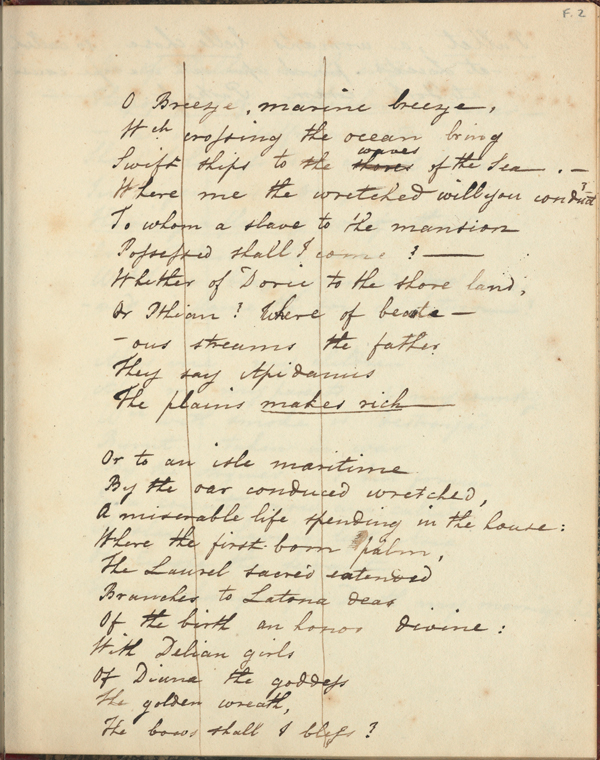 F. 2
O Breeze, marine breeze,
Wch crossing the ocean bring
Swift ships to the shores waves of the Sea . —
Where me the wretched will you conduct?
To whom a slave to the mansion
Possessed shall I come ? —
Whether of Doric to the shore land,
Or Pthian? Where of beaute —
– ous streams the father
They say Apidanus
The plains makes rich —
Or to an isle maritime
By the oar conduced wretched,
A miserable life spending in the house:
Where the first-born palm,
The Laurel sacred extended
Branches to Latona deas
Of the birth an honor divine:
With Delian girls
Of Diana the goddess
The golden wreath,
The bows shall I bless?